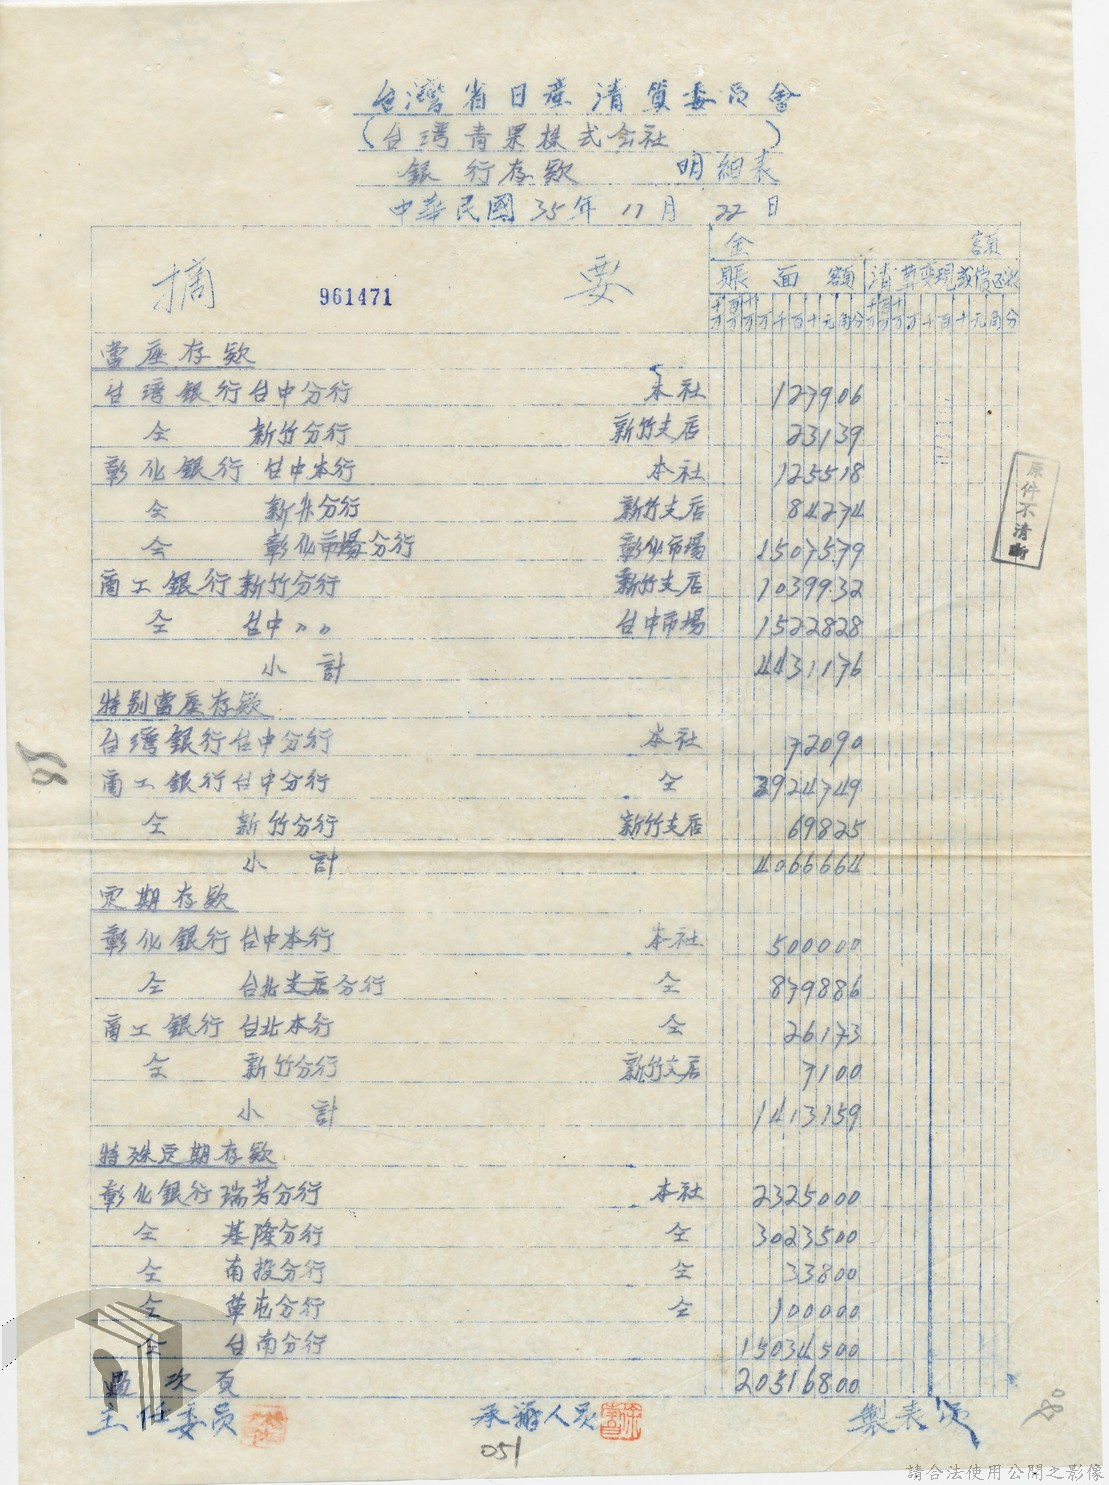 台灣省日產清算委員會
(台灣青果株式会社)
銀行存欵 明細表
中華民國 35年 11月 22日
金 額
摘 要
961471
賬面額 清算变現或償还額
千万 百万 十万 万 千 百 十 元 角 分 千万 百万 十万 万 千 百 十 元 角 分
當座存欵
台灣銀行台中分行 本社 127906
仝 新竹分行 新竹支店 23139
彰化銀行 台中本行 本社 125518
仝 新竹分行 新竹支店 84274
仝 彰化市場分行 彰化市場 1507579
商工銀行新竹分行 新竹支店 1039932
仝 台中〃〃 台中市場 1522828
小計 4431176
特别當座存欵
台灣銀行台中分行 本社 72090
商工銀行台中分行 仝 3924749
仝 新竹分行 新竹支店 69825
小計 4066664
定期存欵
彰化銀行台中本行 本社 500000
仝 台北支店分行 仝 879886
商工銀行 台北本行 仝 26173
仝 新竹分行 新竹支店 7100
小計 1413159
特殊定期存欵
彰化銀行瑞芳分行 本社 2325000
仝 基隆分行 仝 3023500
仝 南投分行 仝 33800
仝 草屯分行 仝 100000
仝 台南分行 15034500
過次頁 20516800
主任委員 承辦人員 製表員
051
原件不清晰
請合法使用公開之影像